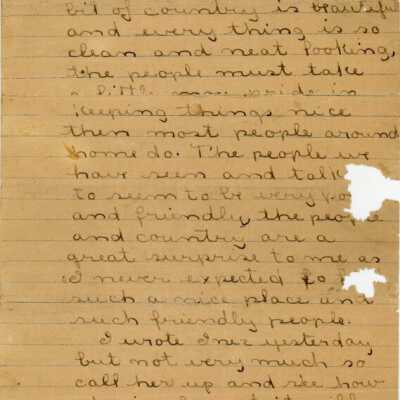 bit of country is beautiful
and every thing is so
clean and neat looking,
the people must take
a little more pride in
keeping things nice
then most people around
home do. The people we
have seen and talk
to seem to be very
and friendly, the people
and country are a
great surprise to me as
I never expected to
such a nice place and
such friendly people.
I wrote Inez yesterday
but not very much so
call her up and see how